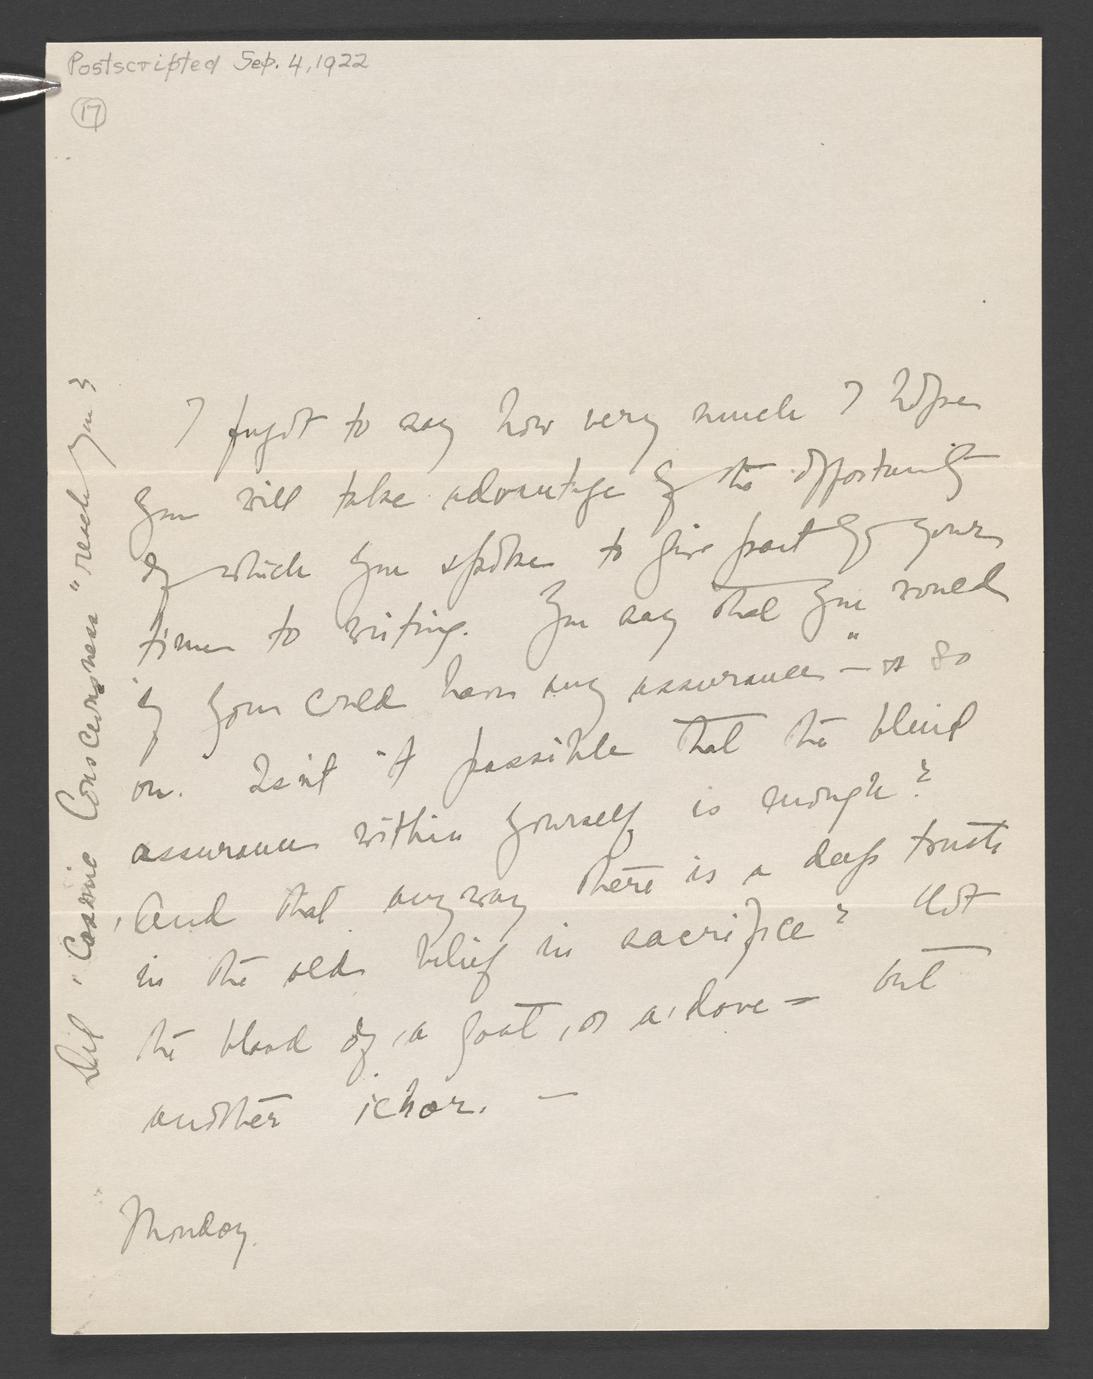 Postscripted Sep. 4, 1922
17
I forgot to say how very much I hope
you will take advantage of the opportunity
of which you spoke to give part of your
time to writing. You say that you would
"if you could have any assurance" — or so
on. Isn't it possible that the blind
assurance within yourself is enough?
And that anyway there is a deep truth
in the old belief in sacrifice? Not
the blood of a goat, or a dove — but
another ichor. —
Monday.
Did "Cosmic Consciousness" reach you?